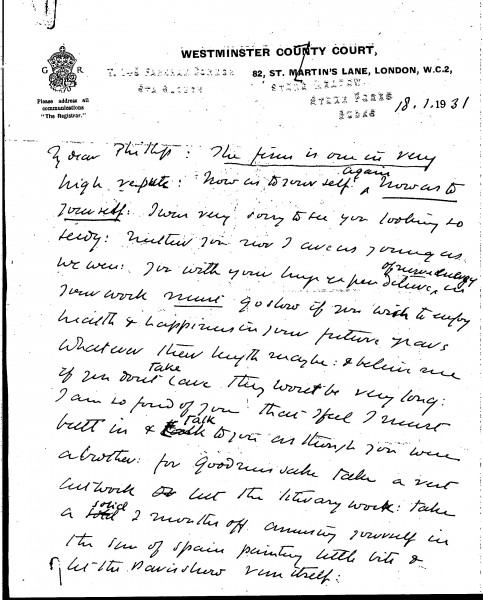 WESTMINSTER COUNTY COURT,
82, ST. MARTIN'S LANE, LONDON, W.C.2,
G R
STOKE POGES
BUCKS
Please address all
communications
"The Registrar."
18.1.1931
My dear Phillips: The firm is one in very
again
high repute: Now as to yourself ^ Now as to
yourself: I was very sorry to see you looking so
seedy: neither you nor I are as young as
of nerve energy
we were: you with your huge expenditure, in
your work must go slow if you wish to enjoy
health & happiness in your future years
whatever their length may be: & believe me
take
if you don't care they wont be very long:
I am so fond of you that I feel I must
talk
butt in & talk to you as though you were
a brother: for goodness sake take a rest
cut work or cut the literary work: take
solid
a 2 months off amusing yourself in
the sun of Spain painting little bits &
let the Davis show run itself: